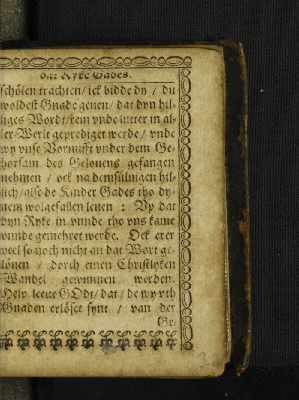 dat Ryke Gades.
schölen trachten / ick bidde dy / du
woldest Gnade geuen / dat dyn hil-
liges Wordt / rein vnde lutter in al-
ler Werlt geprediget werde / vnde
wy vnse Vornufft vnder dem Ge-
horsam des Gelouens gefangen
nehmen / ock na demsüluigen hil-
lich / alse de Kinder Gades tho dy-
nem wolgefallen leuen : Vp dat
dyn Ryke in vnnde tho vns kame
vnnde gemehret werde. Ock erer
veel so noch nicht an dat Wort ge-
lönen / dorch einen Christlyken
Wandel gewunnen werden.
Help leeue GOdt / dat / de wy yth
Gnaden erlöset synt / van der
Ge-